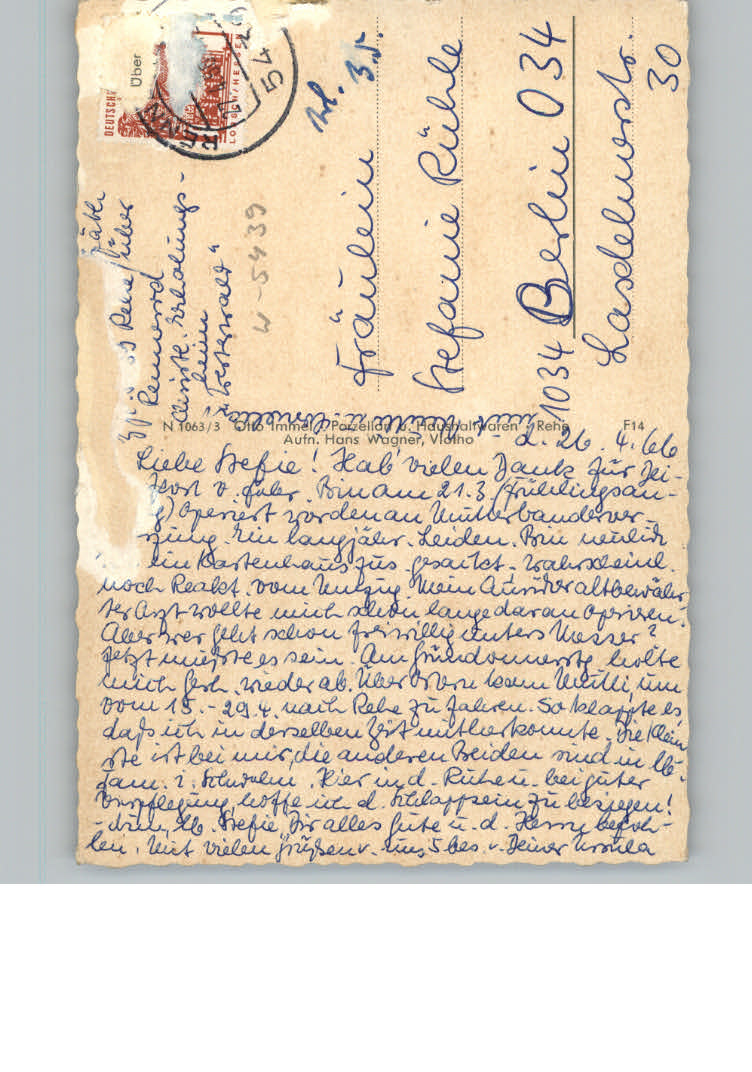 DEUTSCHE
Über
LORSCH/HESSEN
54
bl. 3.5.
Fräulein
Stefanie Rühle
1034 Berlin O34
Lasdehnerstr.
30
z. Zt. 5439 Rehe über
Rennerod
Christl. Erholungs-
heim
"Westerwald"
W-5439
N 1063/3 Otto Immel, Porzellan u. Haushaltwaren, Rehe F14
Aufn. Hans Wagner, Vlotho
d. 26.4.66
Liebe Stefie! Hab' vielen Dank für Dei-
v. Febr. Bin am 21.3. (Frühlingsan-
) operiert worden an Mutterbänderver-
Ein langjähr. Leiden. Bin neulich
ein Kartenhaus zus. gesackt. Wahrscheinl.
noch Reakt. vom Umzug. Mein altbewähr-
ter Arzt wollte mich schon lange daran operieren.
Aber wer geht schon freiwillig unters Messer?
Jetzt mußte es sein. Am Gründonnerstg. holte
mich Gerh. wieder ab. Über Ostern kam Mutti, um
vom 15.-29.4. nach Rehe zu fahren. So klappte es,
daß ich in derselben Zeit mitherkonnte. Die Klein-
ste ist bei mir, die anderen Beiden sind in
Fam. i. Schwelm. Hier in d. Ruhe u. bei guter
Verpflegung, hoffe ich d. Schlappsein zu besiegen!
-drum, lb. Stefie, Dir alles Gute u. d. Herrn befoh-
len. Mit vielen Grüßen v. uns 5 bes. v. Deiner Ursula